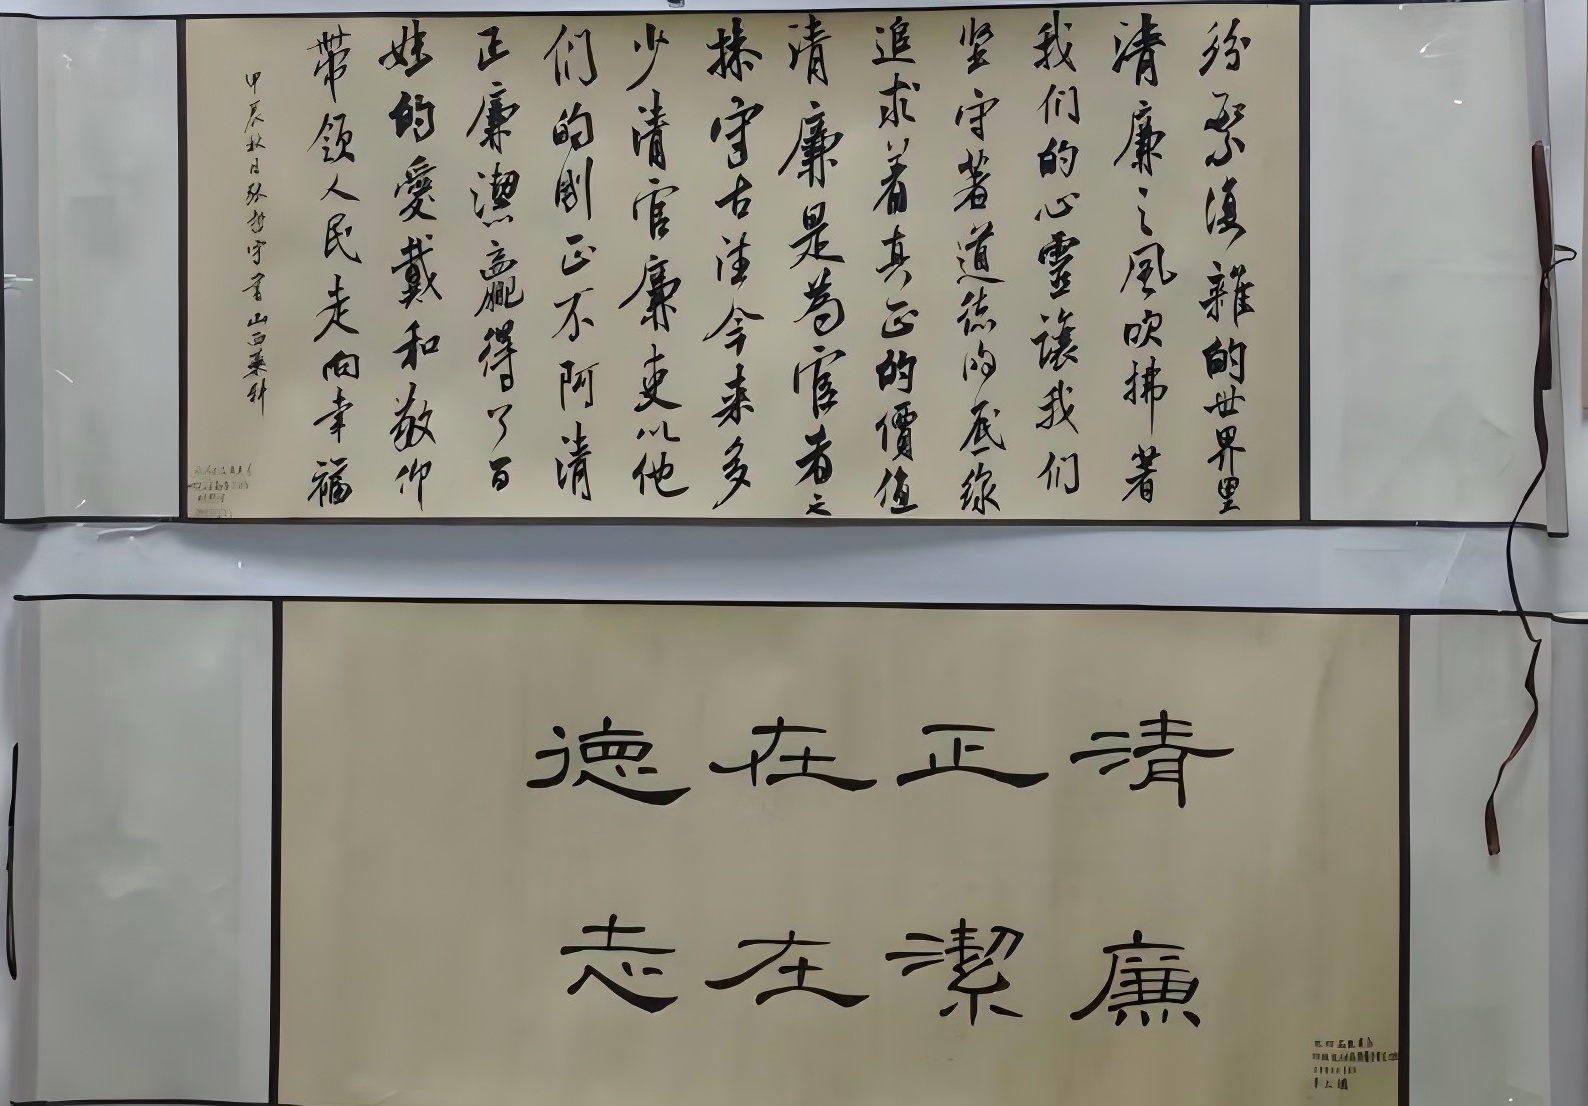 纷繁復雜的世界里
清廉之風吹拂著
我们的心靈讓我们
坚守著道德的底線
追求着真正的價值
清廉是為官者之
操守古往今来多
少清官廉吏以他
们的刚正不阿清
正廉潔贏得了百
姓的愛戴和敬仰
带领人民走向幸福
甲辰秋日张書山西
清正在德
廉潔在志